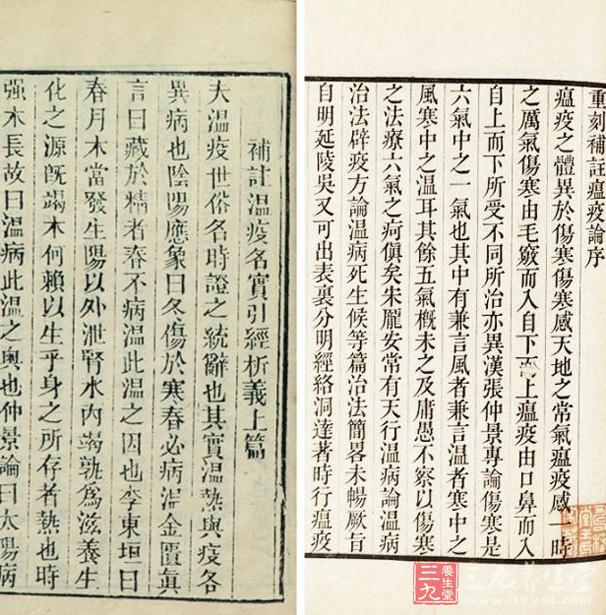 重刻補註瘟疫論序
瘟疫之體異於傷寒傷寒感天地之常氣瘟疫感一時
之厲氣傷寒由毛竅而入自下而上瘟疫由口鼻而入
自上而下所受不同所治亦異漢張仲景專論傷寒是
六氣中之一氣也其中有兼言風者兼言温者寒中之
風寒中之温耳其餘五氣概未之及庸愚不察以傷寒
之法療六氣之疴傎矣朱龐安常有天行温病論温病
治法辟疫方論温病死生候等篇治法簡畧未暢厥旨
自明延陵吳又可出表裏分明經絡洞達者時行瘟疫
補註温疫名實引經析義上篇
夫温疫世俗名時證之統辭也其實温熱與疫各
異病也陰陽應象曰冬傷於寒春必病温金匱眞
言曰藏於精者春不病温此温之因也李東垣曰
春月木當發生陽以外泄腎水内竭孰為滋養生
化之源旣竭木何賴以生乎身之所存者熱也時
强木長故曰温病此温之奥也仲景論曰太陽病
三九養生堂
三九养生堂